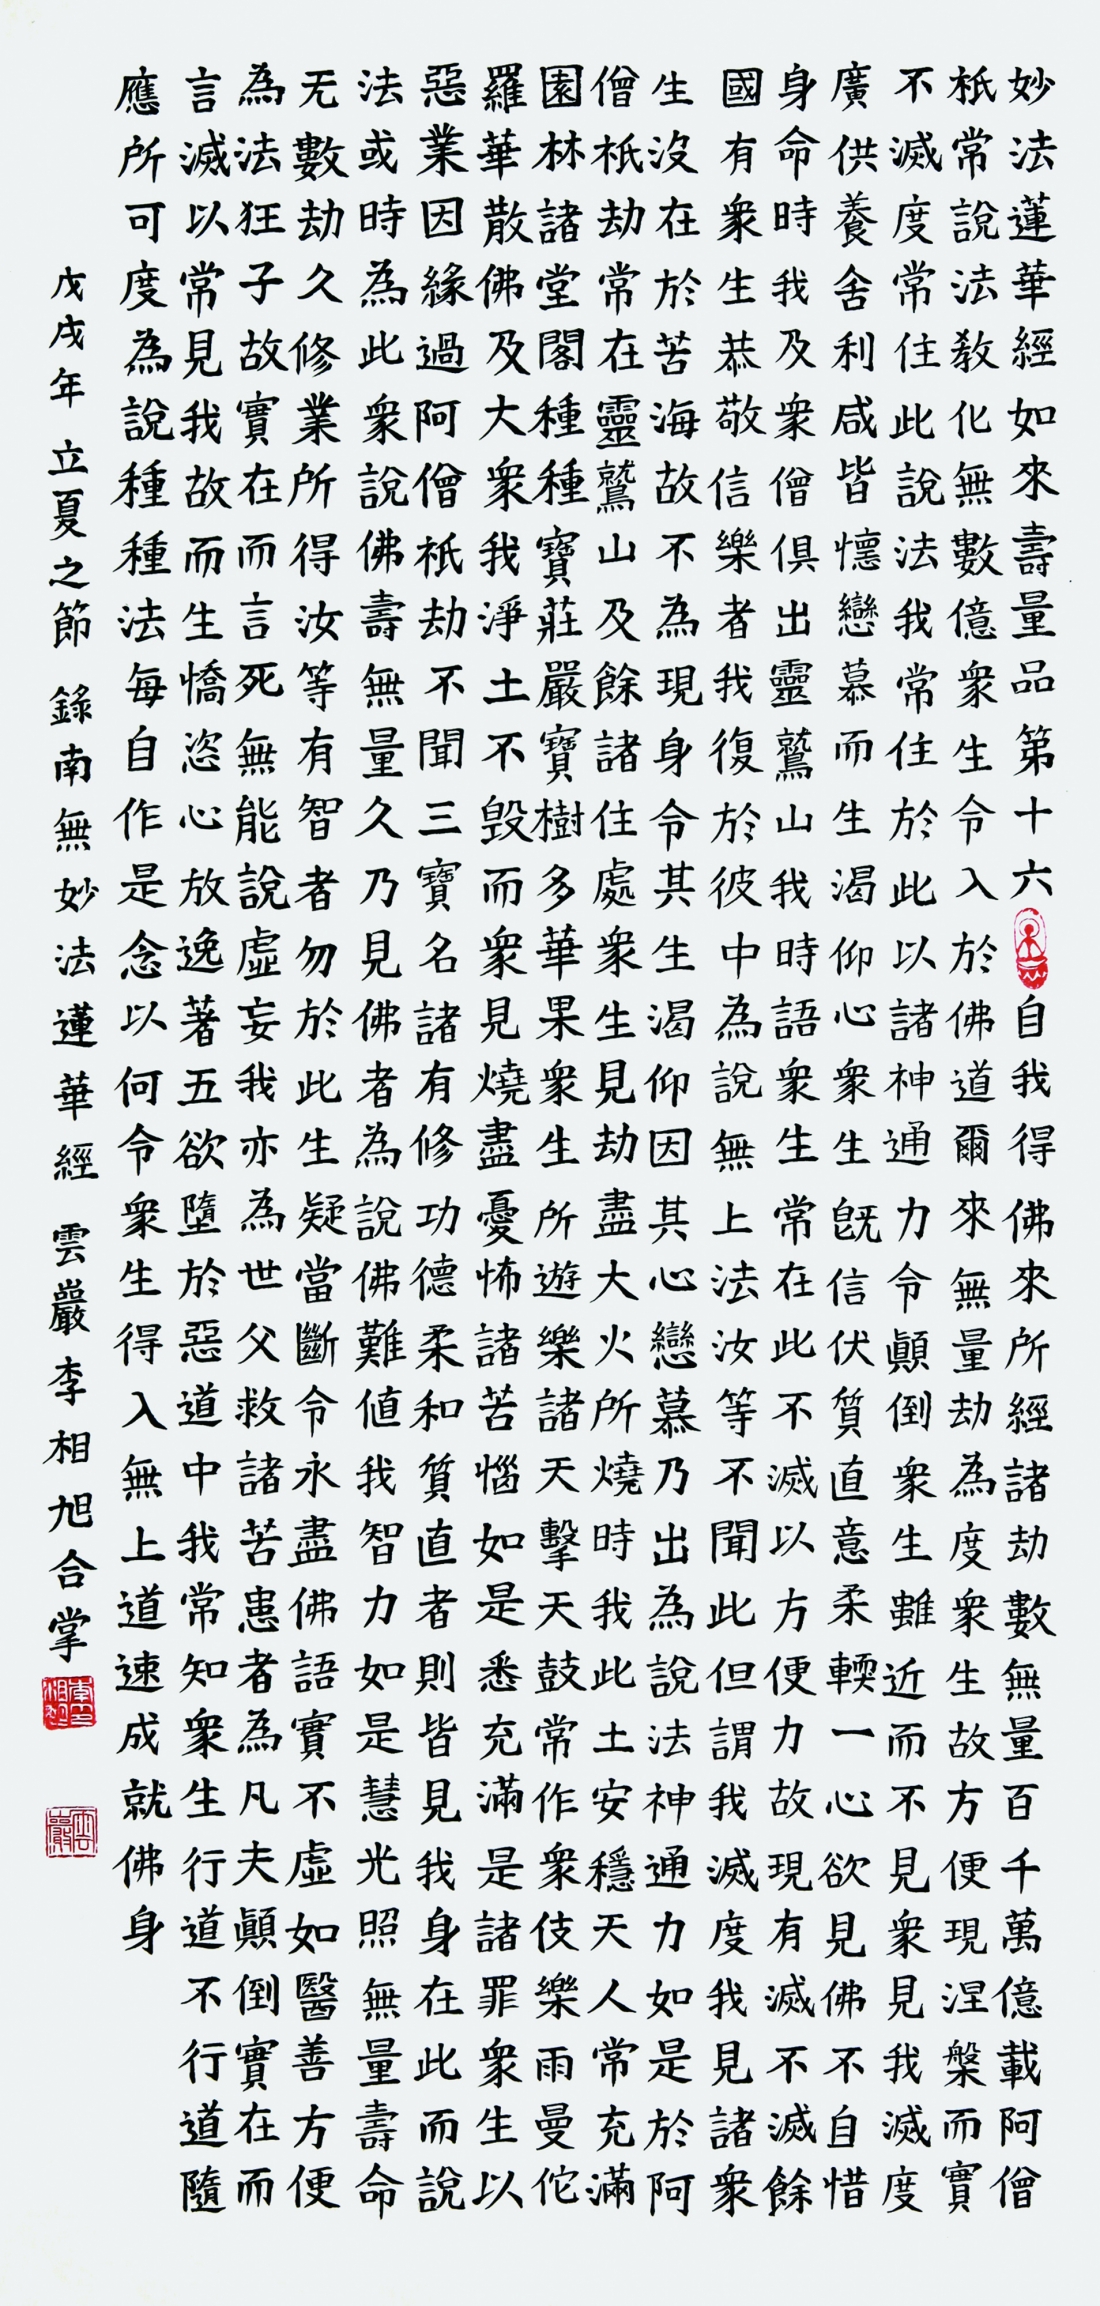 妙法蓮華經如來壽量品第十六 自我得佛來所經諸劫數無量百千萬億載阿僧
祇常說法敎化無數億衆生令入於佛道爾來無量劫為度衆生故方便現涅槃而實
不滅度常住此說法我常住於此以諸神通力令顚倒衆生雖近而不見衆見我滅度
廣供養舍利咸皆懷戀慕而生渴仰心衆生旣信伏質直意柔輭一心欲見佛不自惜
身命時我及衆僧俱出靈鷲山我時語衆生常在此不滅以方便力故現有滅不滅餘
國有衆生恭敬信樂者我復於彼中為說無上法汝等不聞此但謂我滅度我見諸衆
生沒在於苦海故不為現身令其生渴仰因其心戀慕乃出為說法神通力如是於阿
僧祇劫常在靈鷲山及餘諸住處衆生見劫盡大火所燒時我此土安穩天人常充滿
園林諸堂閣種種寶莊嚴寶樹多華果衆生所遊樂諸天擊天鼓常作衆伎樂雨曼佗
羅華散佛及大衆我淨土不毀而衆見燒盡憂怖諸苦惱如是悉充滿是諸罪衆生以
惡業因緣過阿僧祇劫不聞三寶名諸有修功德柔和質直者則皆見我身在此而說
法或時為此衆說佛壽無量久乃見佛者為說佛難値我智力如是慧光照無量壽命
无數劫久修業所得汝等有智者勿於此生疑當斷令永盡佛語實不虛如醫善方便
為法狂子故實在而言死無能說虛妄我亦為世父救諸苦患者為凡夫顚倒實在而
言滅以常見我故而生憍恣心放逸著五欲墮於惡道中我常知衆生行道不行道隨
應所可度為說種種法每自作是念以何令衆生得入無上道速成就佛身
戊戌年 立夏之節 錄南無妙法蓮華經 雲巖李相旭合掌
雲巖